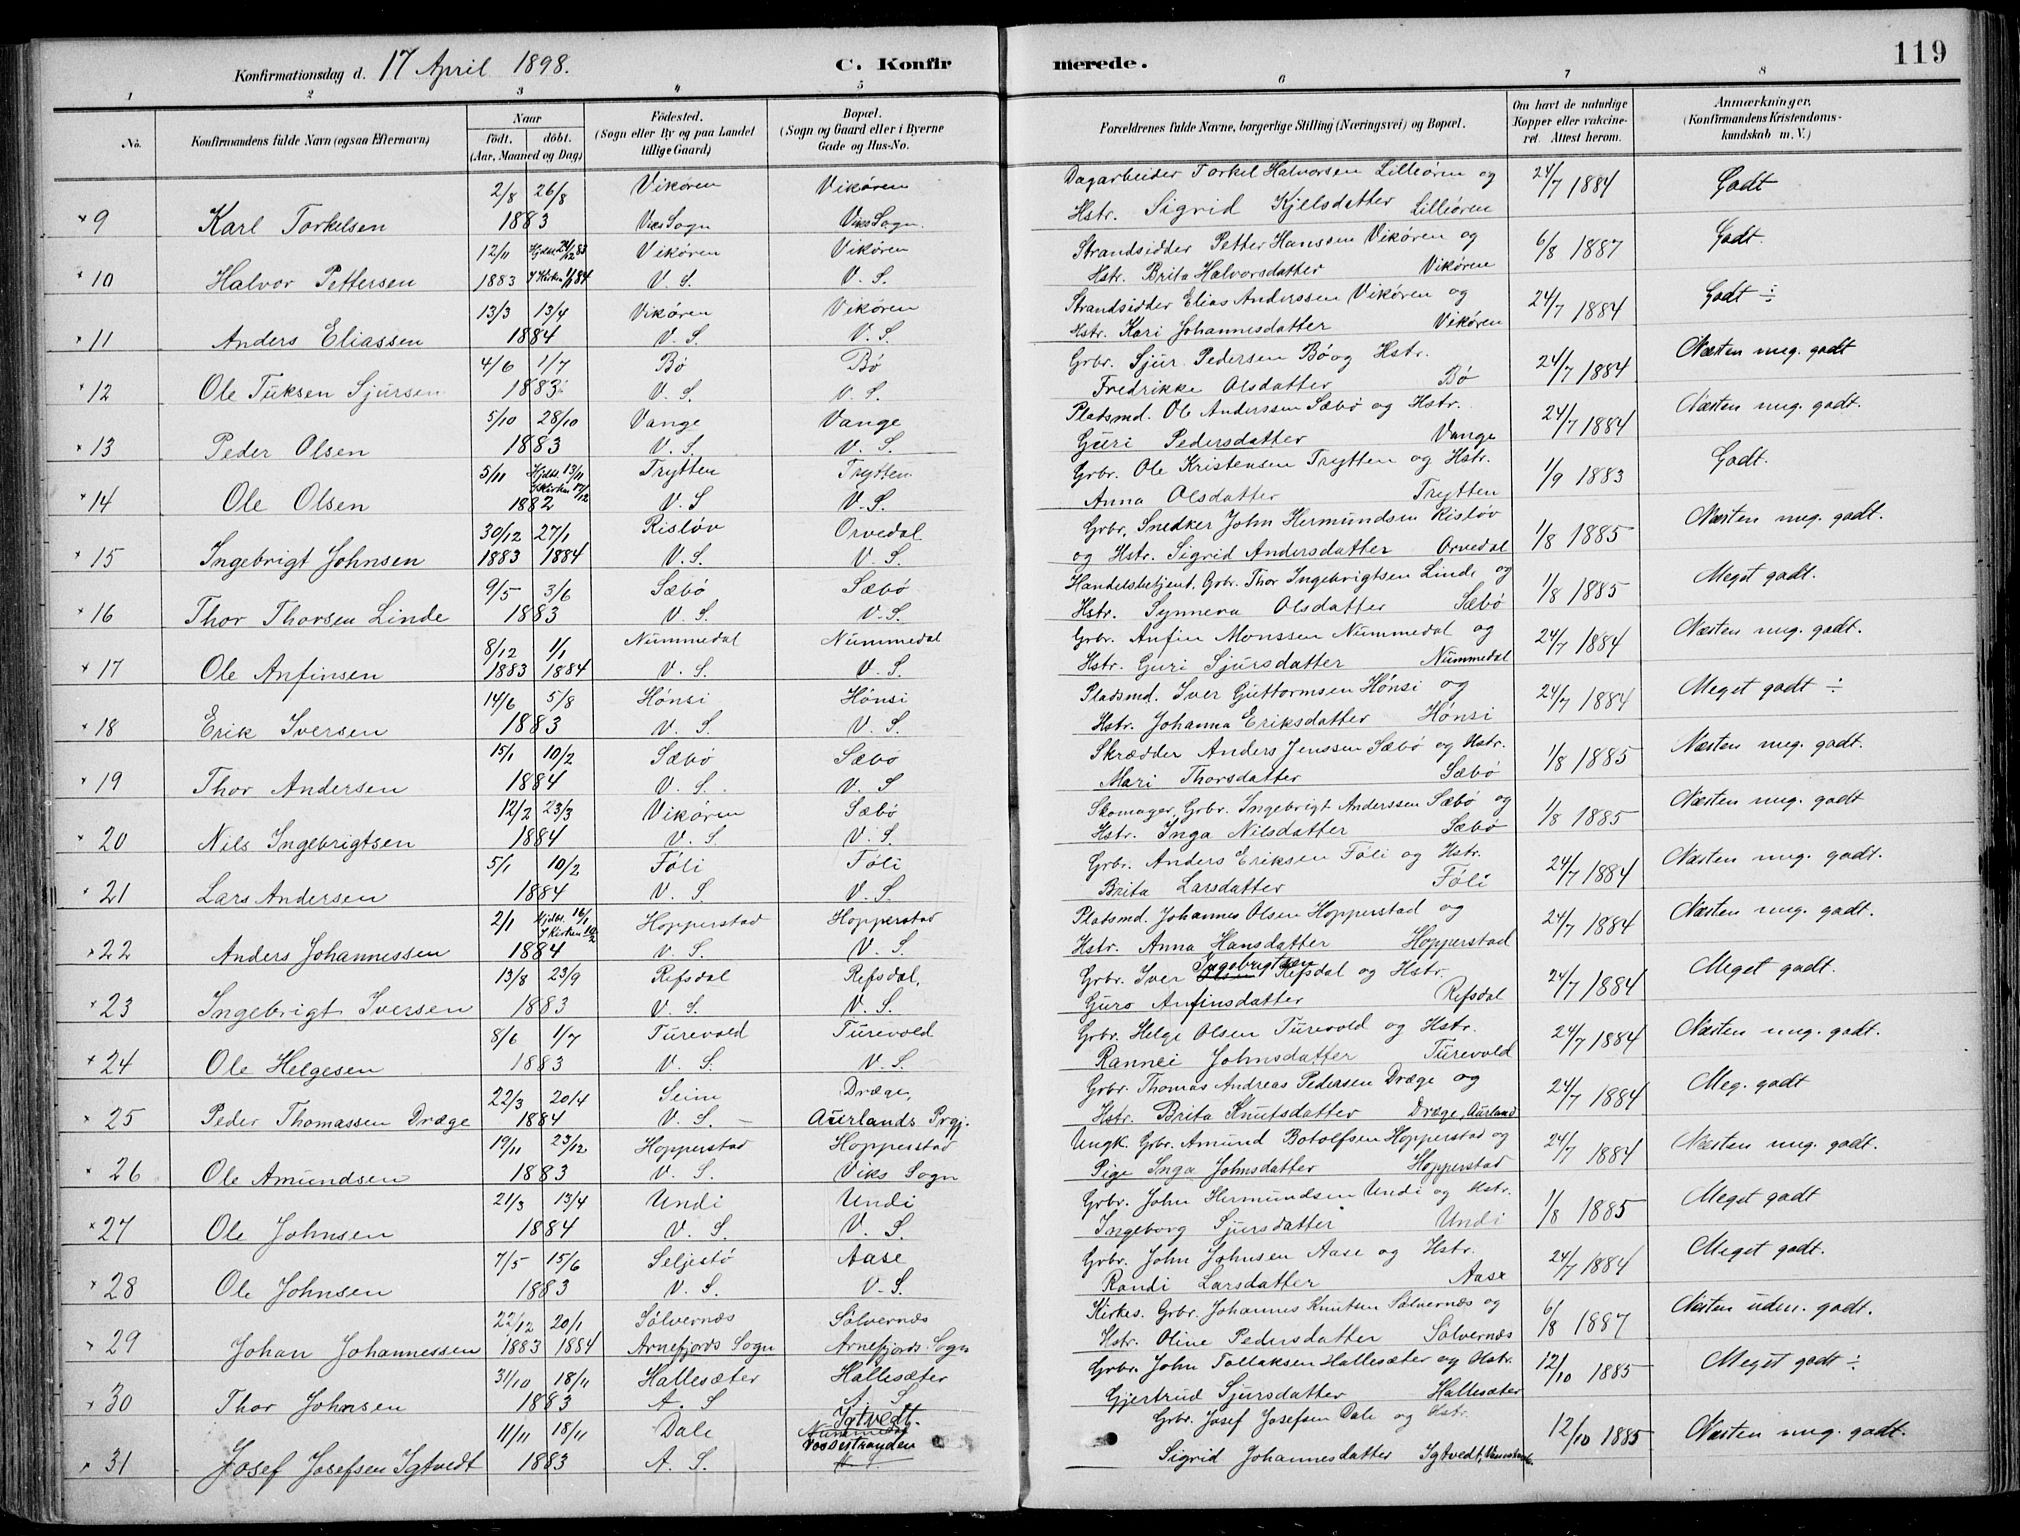 Konfirmationsdag d. 17 April 1898. C. Konfirmerede. 119
1 2 3 4 5 6 7 8
No. Konfirmandens fulde Navn (ogsaa Efternavn) Naar født. døbt. (Aar, Maaned og Dag) Fødested. (Sogn eller By og paa Landet tillige Gaard) Bopæl. (Sogn og Gaard eller i Byerne Gade og Hus-No. Forældrenes fulde Navne, borgerlige Stilling (Næringsvei) og Bopæl. Om havt de naturlige Kopper eller vakcineret. Attest herom. Anmærkninger, (Konfirmandens Kristendomskundskab m. V.)
2/8 26/8 Vikøren Vikøren Dagarbeider Torkel Halvorsen Lilleøren og 24/7 1884 Godt
9 Karl Torkelsen 1883 Viks Sogn Viks Sogn. Hstr. Sigrid Kjelsdatter Lilleøren
12/11 Hjdbt 24/12 83 Vikøren Vikøren Strandsidder Petter Hanssen Vikøren og 6/8 1887 Godt.
10 Halvor Pettersen 1883 I Kirken 1/1 84 V. S. V. S. Hstr. Brita Halvorsdatter Vikøren
13/3 13/4 Vikøren Vikøren Strandsidder Elias Anderssen Vikøren og 24/7 1884 Godt ÷
11 Anders Eliassen 1884 V. S. V. S. Hstr. Kari Johannesdatter Vikøren
4/6 1/7 Bø Bø Grbr. Sjur Pedersen Bø og Hstr. 24/7 1884 Næsten mug. godt
12 Ole Tuksen Sjursen 1883 V. S. V. S. Fredrikke Olsdatter Bø
5/10 28/10 Vange Vange Pladsmd. Ole Anderssen Sæbø og Hstr. 24/7 1884 Næsten mug. godt.
13 Peder Olsen 1883 V. S. V. S. Guri Pedersdatter Vange
5/11 Hjdbt 13/11 I Kirken 17/12 Trytten Trytten Grbr. Ole Kristensen Trytten og Hstr. 1/9 1883 Godt.
14 Ole Olsen 1882 V. S V. S. Anna Olsdatter Trytten
30/12 27/1 Risløv Orvedal Grbr, Snedker John Hermundsen Risløv 1/8 1885 Næsten mug. godt.
15 Ingebrigt Johnsen 1883 1884 V. S. V. S. og Hstr. Sigrid Andersdatter Orvedal
9/5 3/6 Sæbø Sæbø Handelsbetjent, Grbr. Thor Ingebrigtsen Linde og 1/8 1885 Meget godt.
16 Thor Thorsen Linde 1883 V. S. V. S. Hstr. Synneva Olsdatter Sæbø
8/12 1/1 Nummedal Nummedal Grbr. Anfin Monssen Nummedal og 24/7 1884 Næsten mug. godt.
17 Ole Anfinsen 1883 1884 V. S. V. S. Hstr. Guri Sjursdatter Nummedal
14/6 5/8 Hønsi Hønsi Pladsmd. Iver Guttormsen Hønsi og 24/7 1884 Meget godt ÷
18 Erik Iversen 1883 V. S. V. S. Hstr. Johanna Eriksdatter Hønsi
15/1 10/2 Sæbø Sæbø Skrædder Anders Jenssen Sæbø og Hstr. 1/8 1885 Næsten mug. godt.
19 Thor Andersen 1884 V. S. V. S Mari Thorsdatter Sæbø
12/2 23/3 Vikøren Sæbø Skomager, Grbr. Ingebrigt Anderssen Sæbø og 1/8 1885 Næsten mug. godt
20 Nils Ingebrigtsen 1884 V. S. V. S. Hstr. Inga Nilsdatter Sæbø
5/1 10/2 Føli Føli Grbr. Anders Eriksen Føli og Hstr. 24/7 1884 Næsten mug. godt.
21 Lars Andersen 1884 V. S. V. S. Brita Larsdatter Føli
2/1 Hjdbt. 16/1 I Kirken 10/2 Hopperstad Hopperstad Pladsmd. Johannes Olsen Hopperstad og 24/7 1884 Næsten mug. godt.
22 Anders Johannessen 1884 V. S. V. S. Hstr. Anna Hansdatter Hopperstad
13/8 23/9 Refsdal Refsdal, Grbr. Iver Ingebrigtsen Refsdal og Hstr. 24/7 1884 Meget godt.
23 Ingebrigt Iversen 1883 V. S. V. S. Guro Anfinsdatter Refsdal
8/6 1/7 Turevold Turevold Grbr. Helge Olsen Turevold og Hstr. 24/7 1884 Næsten mug. godt.
24 Ole Helgesen 1883 V. S. V. S. Rannei Johnsdatter Turevold
22/3 20/4 Seim Dræge, Grbr. Thomas Andreas Pedersen Dræge og 24/7 1884 Meg. godt
25 Peder Thomassen Dræge 1884 V. S. Aurlands Prgj. Hstr. Brita Knutsdatter Dræge, Aurland
19/11 23/12 Hopperstad Hopperstad Ungk. Grbr. Amund Botolfsen Hopperstad og 24/7 1884 Næsten mug. godt.
26 Ole Amundsen 1883 V. S. Viks Sogn Pige Inga Johnsdatter Hopperstad
21/3 13/4 Undi Undi Grbr. John Hermundsen Undi og Hstr. 1/8 1885 Meget godt
27 Ole Johnsen 1884 V. S. V. S. Ingeborg Sjursdatter Undi
7/5 15/6 Seljestø Aase Grbr. John Johnsen Aase og Hstr. 24/7 1884 Meget godt.
28 Ole Johnsen 1883 V. S. V. S. Randi Larsdatter Aase
22/12 20/1 Sølvernæs Sølvernæs Kirkes. Grbr. Johannes Knutsen Sølvernæs og 6/8 1887 Næsten uden. godt.
29 Johan Johannessen 1883 1884 Arnefjords Sogn Arnefjords Sogn Hstr. Oline Pedersdatter Sølvernæs
31/10 18/11 Hallesæter Hallesæter Grbr. John Tollaksen Hallesæter og Hstr. 12/10 1885 Meget godt ÷
30 Thor Johnsen 1883 A. S A. S Gjertrud Sjursdatter Hallesæter
11/11 18/11 Dale Igtvedt. Vossestranden Grbr. Josef Josefsen Dale og Hstr. 12/10 1885 Næsten mug. godt.
31 Josef Josefsen Igtvedt 1883 A. S. Sigrid Johannesdatter Igtvedt,